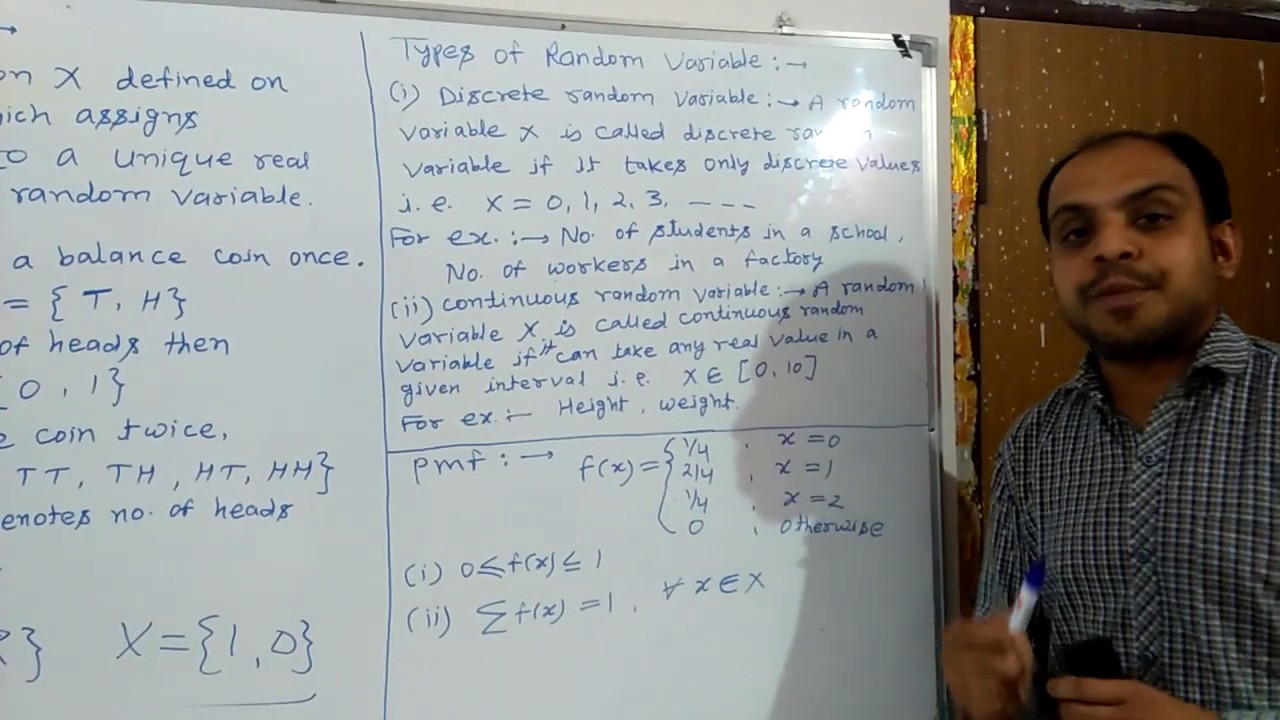 on X defined on
ich assigns
to a unique real
random variable.
a balance coin once.
= { T, H}
of heads then
0, 1}
coin twice,
TT, TH, HT, HH}
enotes no. of heads
} X = {1, 0}
Types of Random Variable :→
(i) Discrete random variable :→ A random
variable X is called discrete
variable if it takes only discrete values
i.e. X = 0, 1, 2, 3, ---
For ex. :→ No. of students in a school,
No. of workers in a factory
(ii) continuous random variable :→ A random
variable X is called continuous random
variable if it can take any real value in a
given interval i.e. X ∈ [0, 10]
For ex. :- Height, weight.
pmf :→ f(x) = { 1/4 , x = 0
2/4 , x = 1
1/4 , x = 2
0 , otherwise
(i) 0 ≤ f(x) ≤ 1
(ii) ∑ f(x) = 1, ∀ x ∈ X